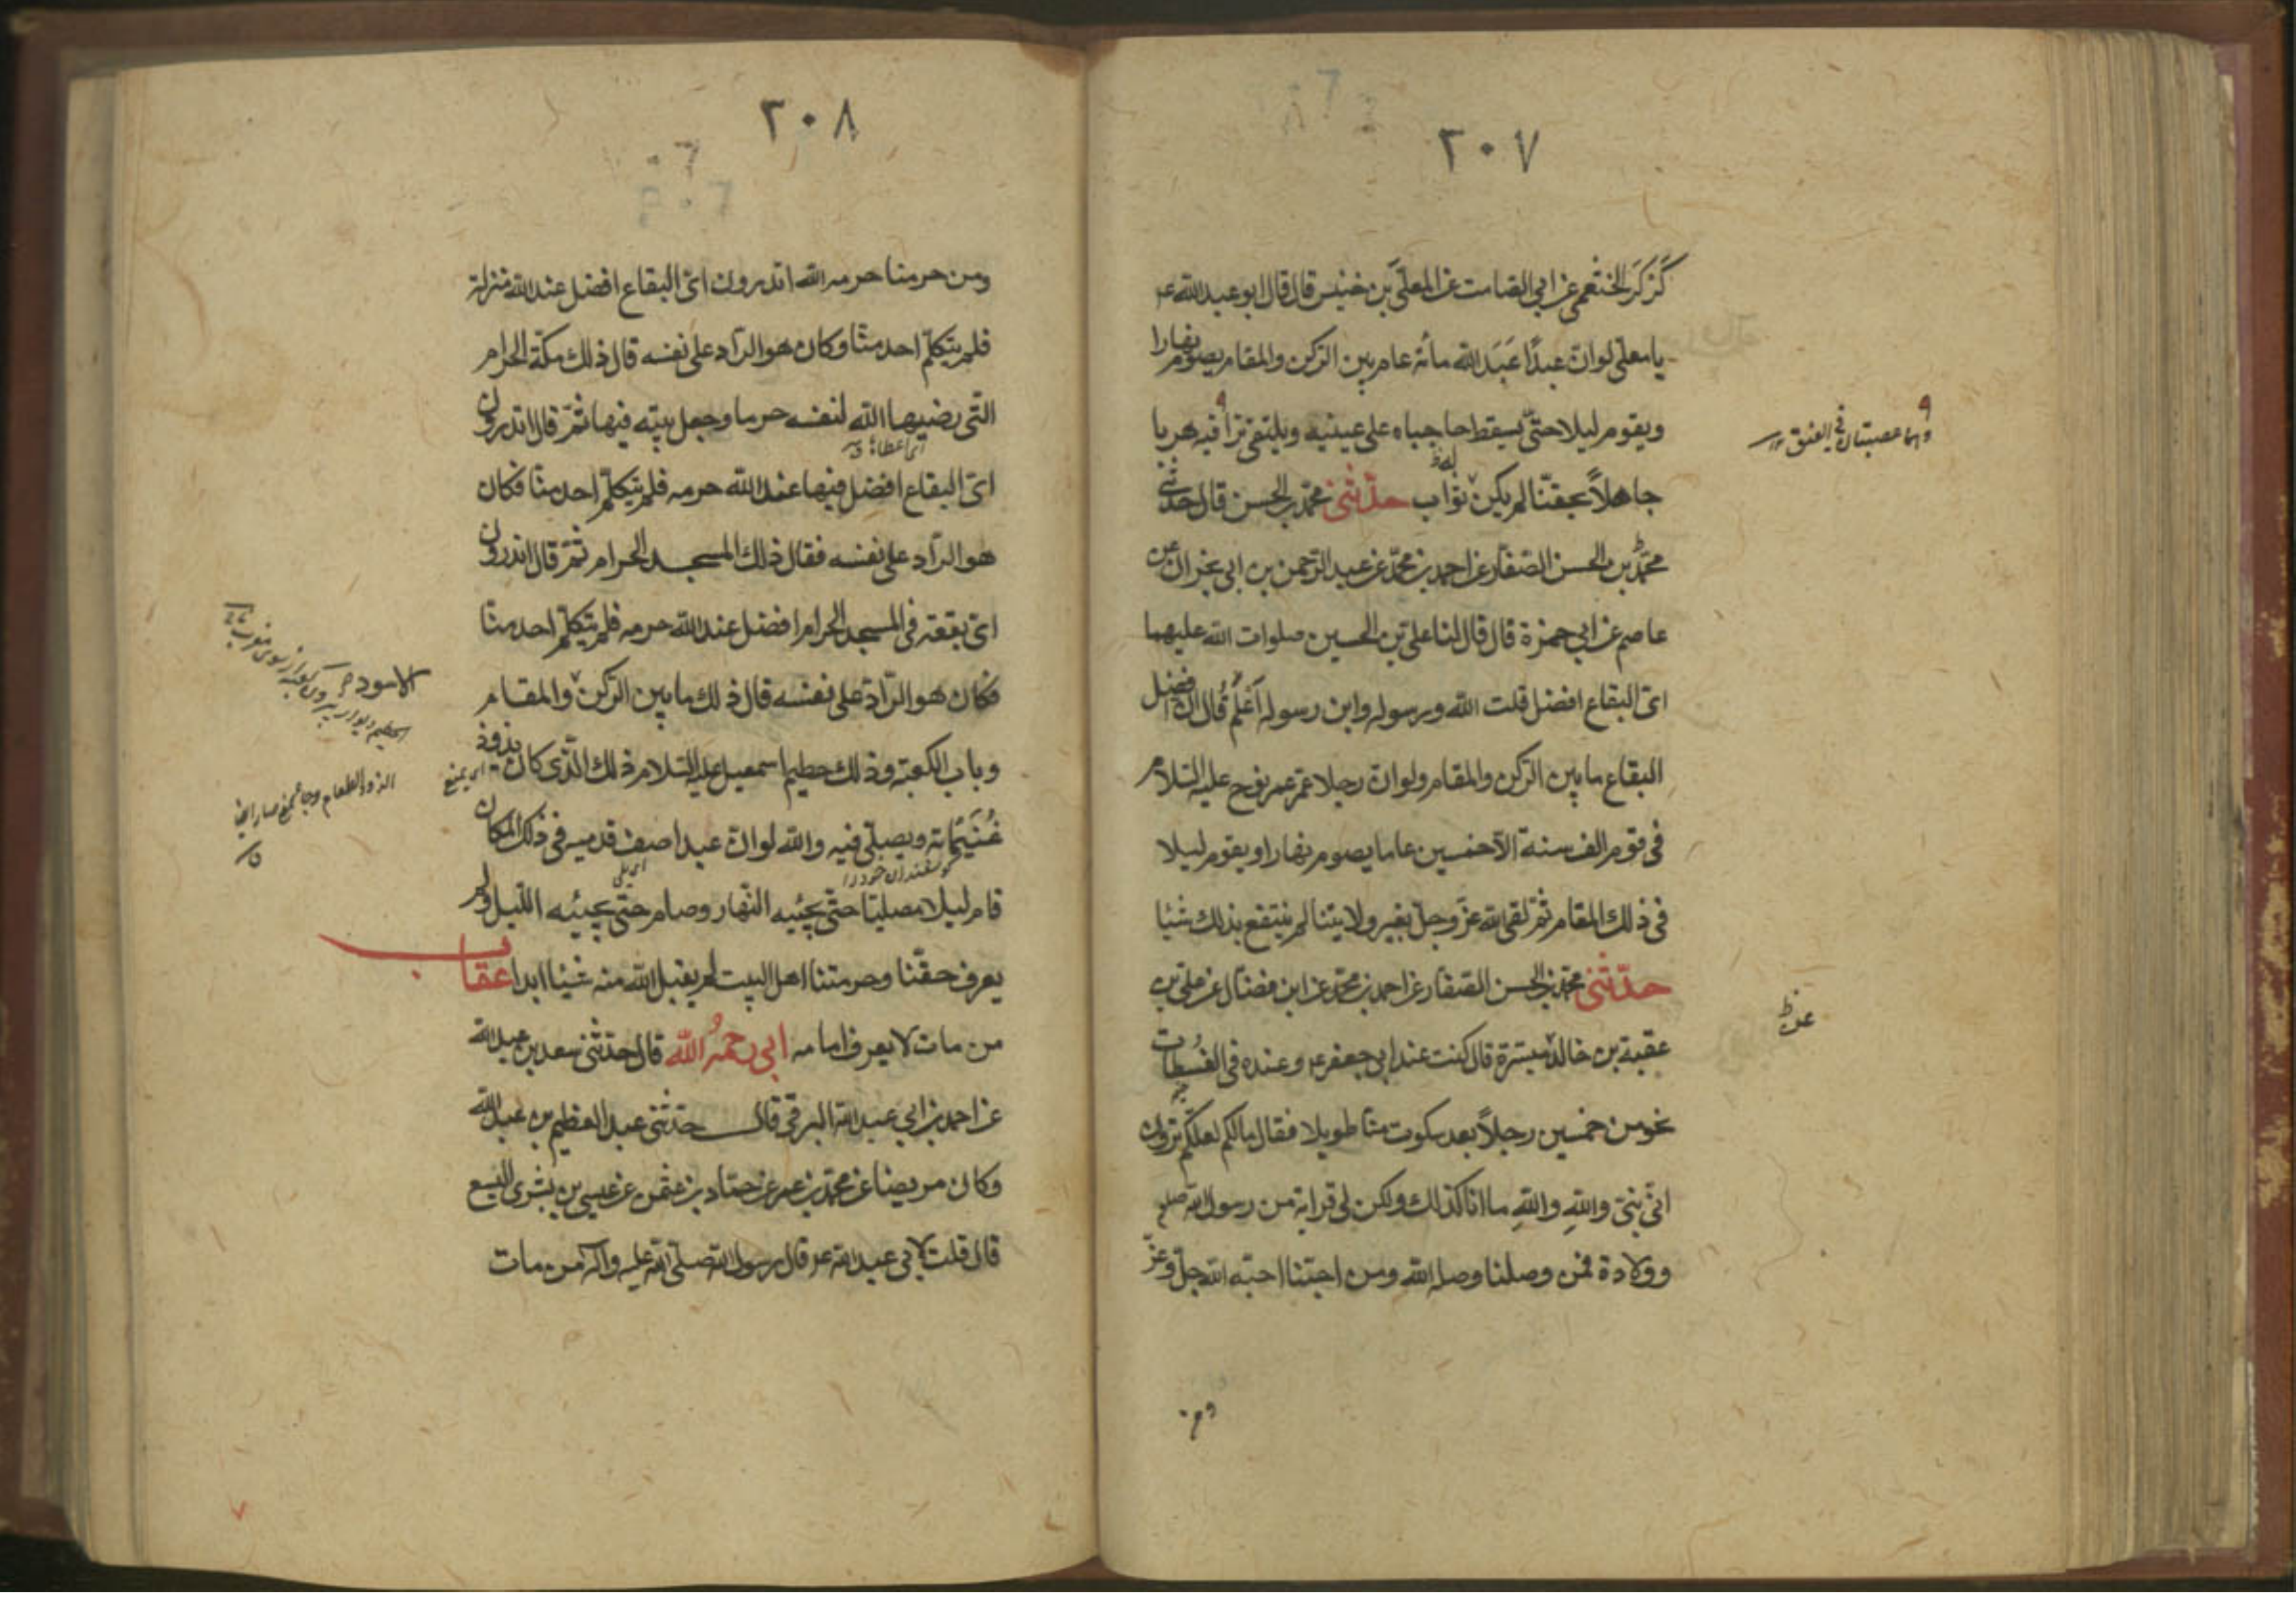 ٢٠٧
كَزكَر الخثعمى عن ابى الصامت عن المعلّى بن خنيس قال قال ابو عبد الله ع
يا معلى لو ان عبدًا عَبَد الله مائة عام بين الركن والمقام يصوم نهارا
ويقوم ليلا حتى يسقط حاجباه على عينيه ويلتقى تراقيه هرما
وهما عصبتان فى العنق
جاهلاً بحقنا لم يكن له ثواب حدّثنى محمد بن الحسن قال حدثنى
محمد بن الحسن الصفار عن احمد بن محمد عن عبد الرحمن بن ابى نجران عن
عاصم عن ابى حمزة قال قال لنا على بن الحسين صلوات الله عليهما
اىّ البقاع افضل قلت الله ورسوله وابن رسوله اَعْلَمُ قال ان افضل
البقاع ما بين الركن والمقام ولو ان رجلا عمّر عمر نوح عليه السلام
فى قوم الف سنة الّا خمسين عاما يصوم نهارا ويقوم ليلا
فى ذلك المقام ثمّ لقى الله عزّ وجلّ بغير ولايتنا لم ينتفع بذلك شيئا
حدّثنى محمد بن الحسن الصفار عن احمد بن محمد عن ابن فضال عن على بن
عن ظ
عقبة بن خالد ميسّرة قال كنت عند ابى جعفر ع وعنده فى الفُسطاط
نحو من خمسين رجلاً بعد سكوت منّا طويلا فقال ما لكم لعلكم ترون
انّى نبىّ والله والله ما انا كذلك ولكن لى قرابة من رسول الله صلعم
وولادة فمن وصلنا وصله الله ومن احبّنا احبّه الله جلّ وعزّ
ومن
٢٠٨
ومن حرمنا حرمه الله اتدرون اىّ البقاع افضل عند الله منزلة
فلم يتكلّم احد منّا وكان هو الرّاد على نفسه قال ذلك مكّة الحرام
التّى رضيها الله لنفسه حرما وجعل بيته فيها ثمّ قال اتدرون
اىّ البقاع افضل فيها عند الله حرمه فلم يتكلّم احد منّا فكان
هو الرّاد على نفسه فقال ذلك المسجد الحرام ثمّ قال اتدرون
اىّ بقعة فى المسجد الحرام افضل عند الله حرمه فلم يتكلّم احد منّا
فكان هو الرّاد على نفسه قال ذلك ما بين الركن والمقام
الاسود
وباب الكعبة وذلك حطيم اسمعيل عليه السلام ذلك الّذى كان يذود
اى يمنع
غُنَيْماته ويصلّى فيه والله لو انّ عبدا صف قدميه فى ذلك المكان
گوسفندان خود را
قام ليلا مصليّا حتّى يجيئه النّهار وصام حتّى يجيئه اللّيل ولم
يعرف حقّنا وحرمتنا اهل البيت لم يقبل الله منه شيئا ابدا عقاب
من مات لا يعرف امامه ابى رحمهُ الله قال حدّثنى سعد بن عبد الله
عن احمد بن ابى عبد الله البرقى قال حدّثنى عبد العظيم بن عبد الله
وكان مريضا عن محمد بن عمر عن حمّاد بن عثمن عن عيسى بن بشرى اليسع
قال قلت لابى عبد الله ع قال رسول الله صلّى الله عليه واله من مات